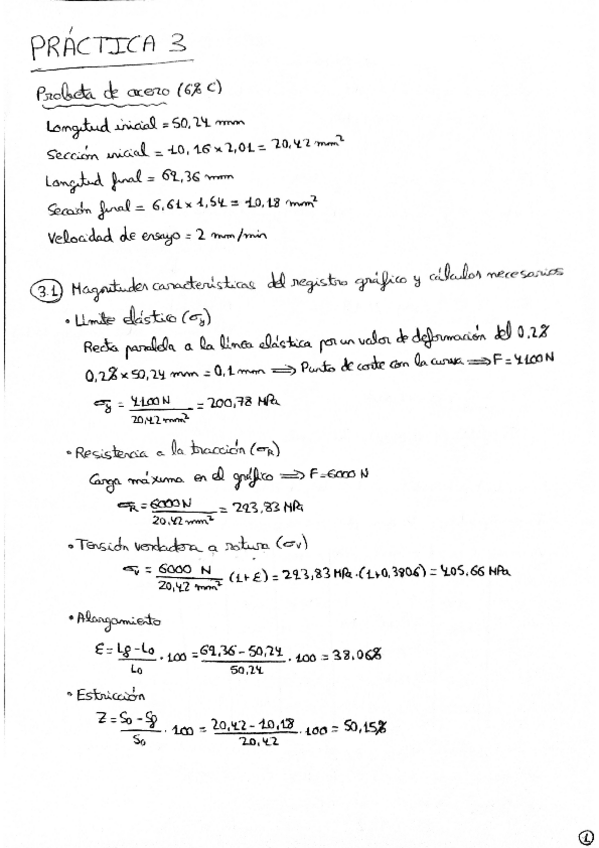 PRÁCTICA 3
Probeta de acero (6% C)
Longitud inicial = 50,24 mm
Sección inicial = 10,16 x 2,01 = 20,42 mm²
Longitud final = 69,36 mm
Sección final = 6,61 x 1,54 = 10,18 mm²
Velocidad de ensayo = 2 mm/min
3.1 Magnitudes características del registro gráfico y cálculos necesarios
• Límite elástico (σy)
Recta paralela a la línea elástica por un valor de deformación del 0,2%
0,2% x 50,24 mm = 0,1 mm ⟹ Punto de corte con la curva ⟹ F = 4100 N
σy = 4100 N / 20,42 mm² = 200,78 MPa
• Resistencia a la tracción (σR)
Carga máxima en el gráfico ⟹ F = 6000 N
σR = 6000 N / 20,42 mm² = 293,83 MPa
• Tensión verdadera a rotura (σv)
σv = 6000 N / 20,42 mm² (1+ε) = 293,83 MPa · (1+0,3806) = 405,66 MPa
• Alargamiento
ε = Lf - Lo / Lo · 100 = 69,36 - 50,24 / 50,24 · 100 = 38,06%
• Estricción
Z = So - Sf / So · 100 = 20,42 - 10,18 / 20,42 · 100 = 50,15%
1